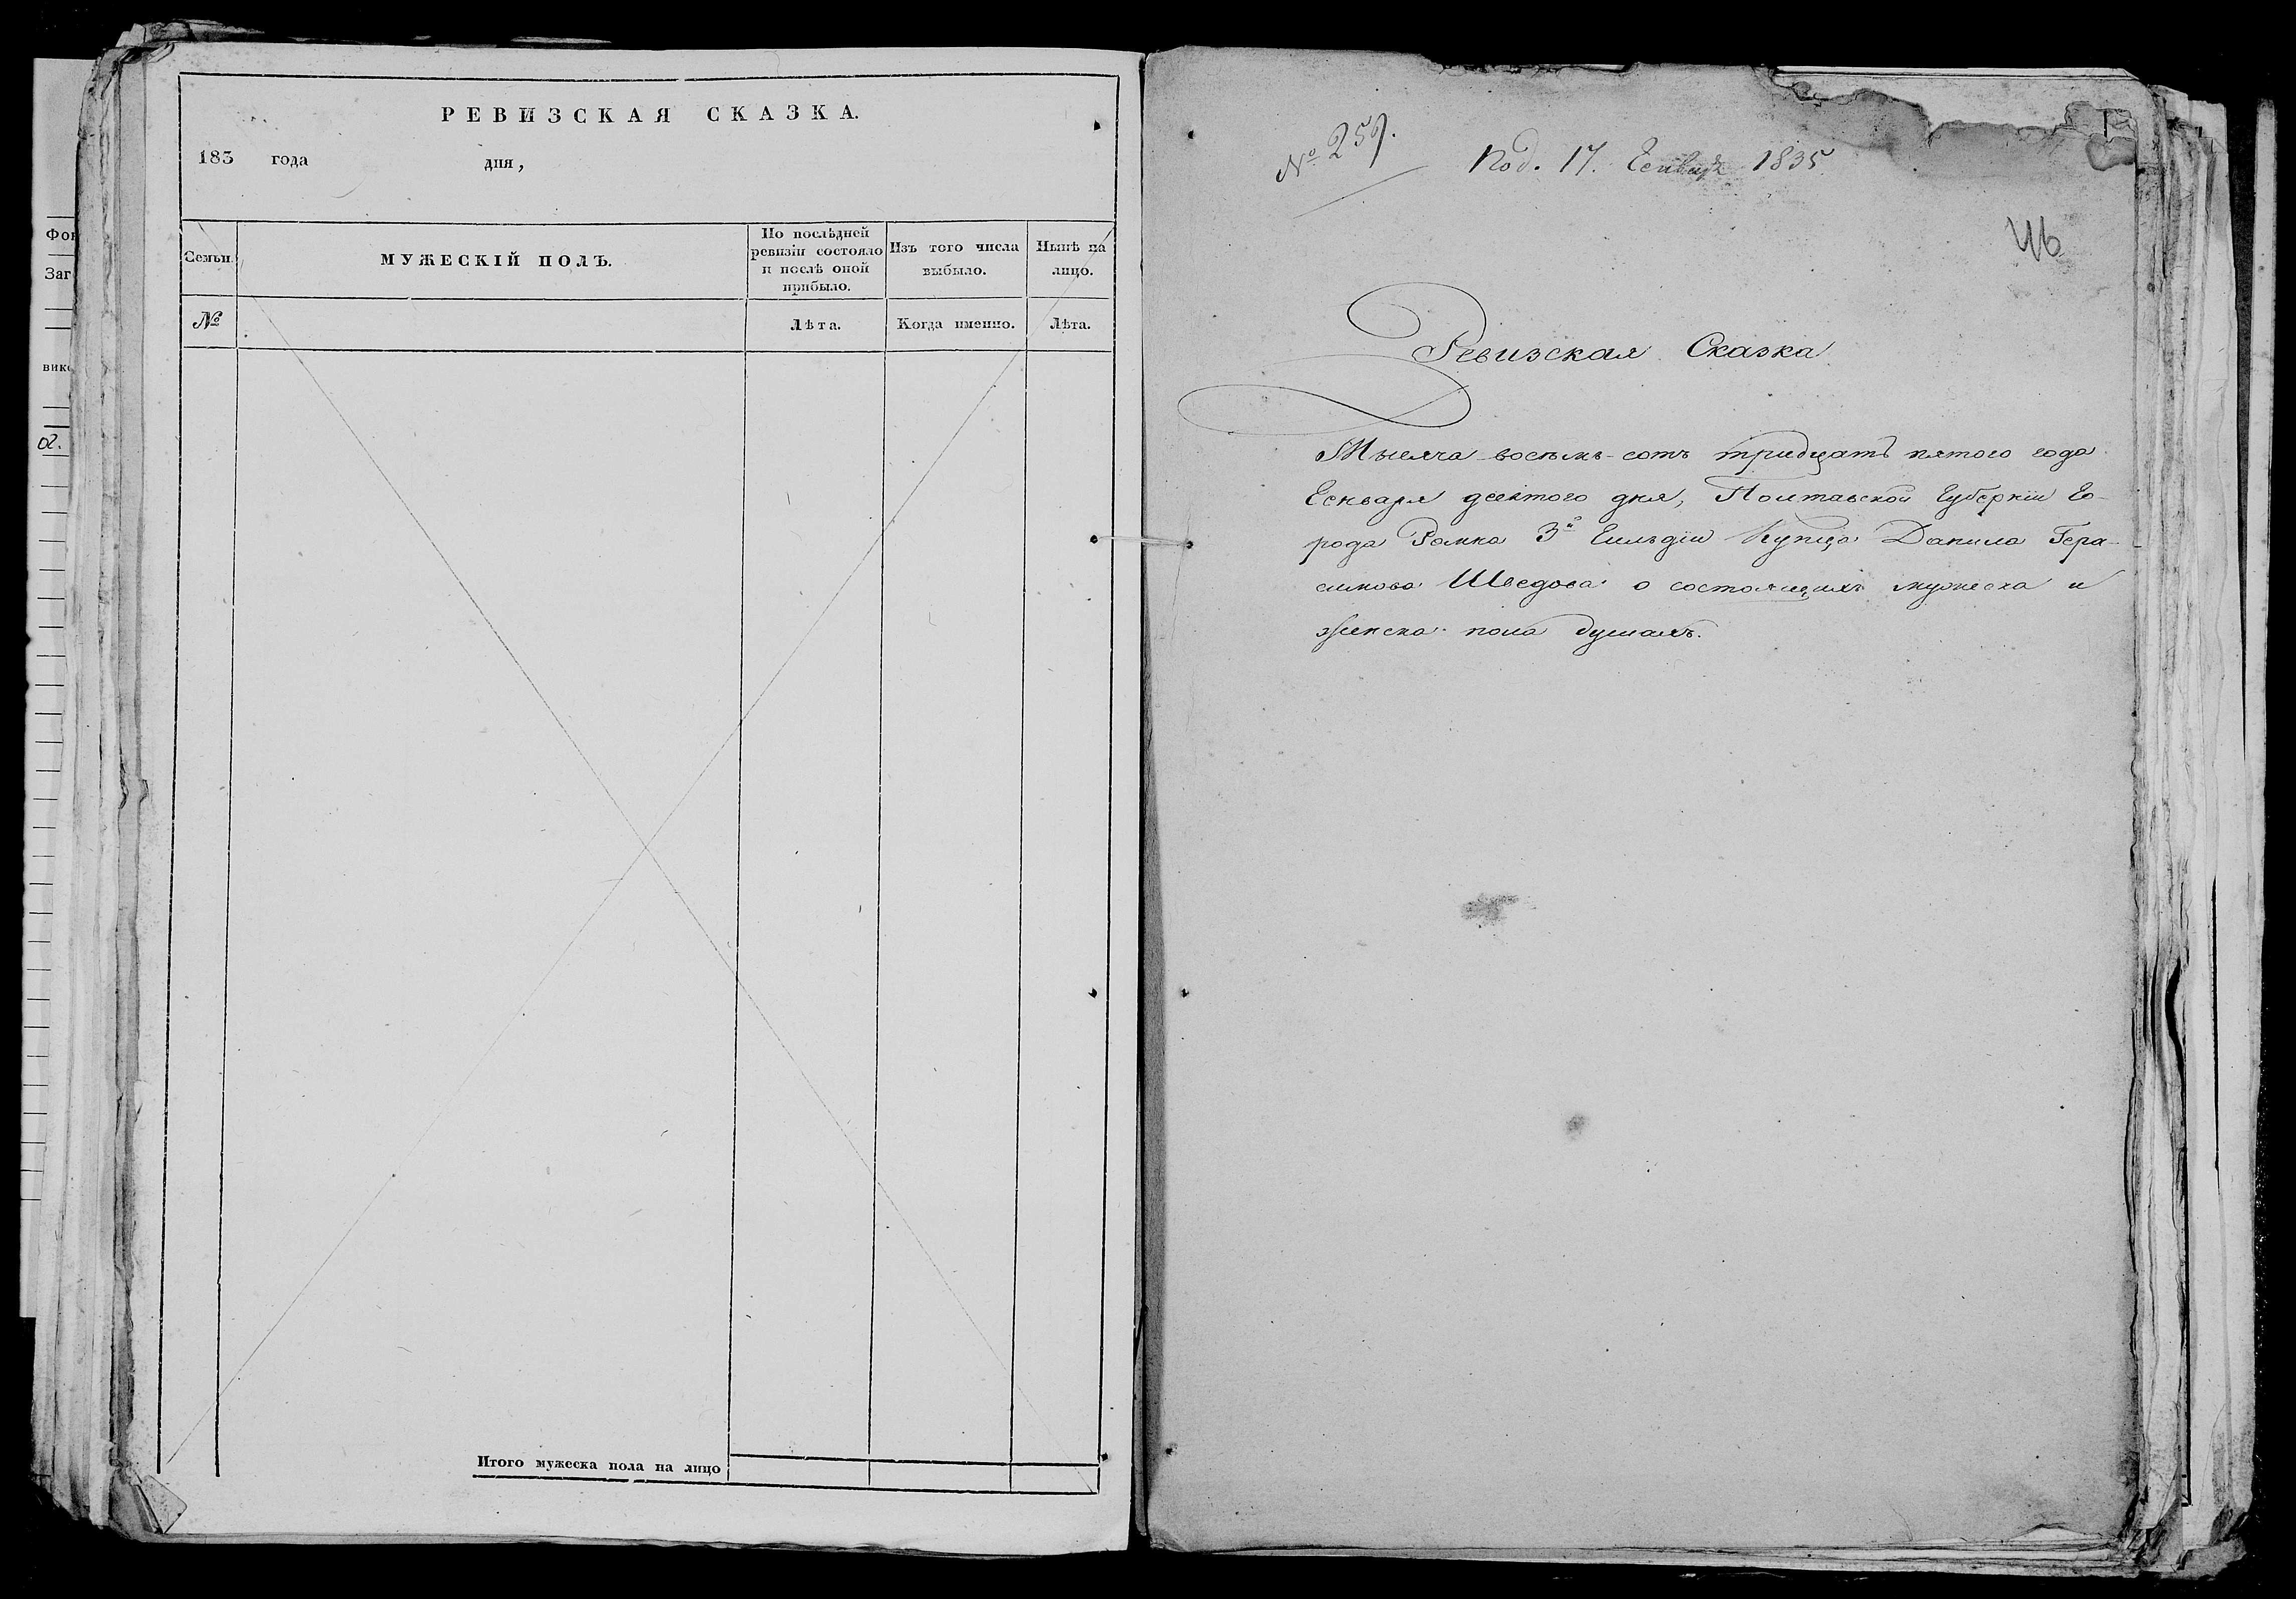 Фон
Заг
вико
02.
РЕВИЗСКАЯ СКАЗКА.
183 года дня,
Семьи.
МУЖЕСКІЙ ПОЛЪ.
По послѣдней
ревизіи состояло
и послѣ оной
прибыло.
Изъ того числа
выбыло.
Нынѣ на
лицо.
№
Лѣта.
Когда именно.
Лѣта.
Итого мужеска пола на лицо
№ 259.
Под. 17. Генваря 1835
46
Ревизская Сказка
Тысяча восемь-сотъ тридцать пятого года
Генваря девятого дня, Полтавской Губерніи Го-
рода Ромна 3й Гильдіи Купца Данила Гера-
симова Шведова о состоящихъ мужеска и
женска пола душахъ.